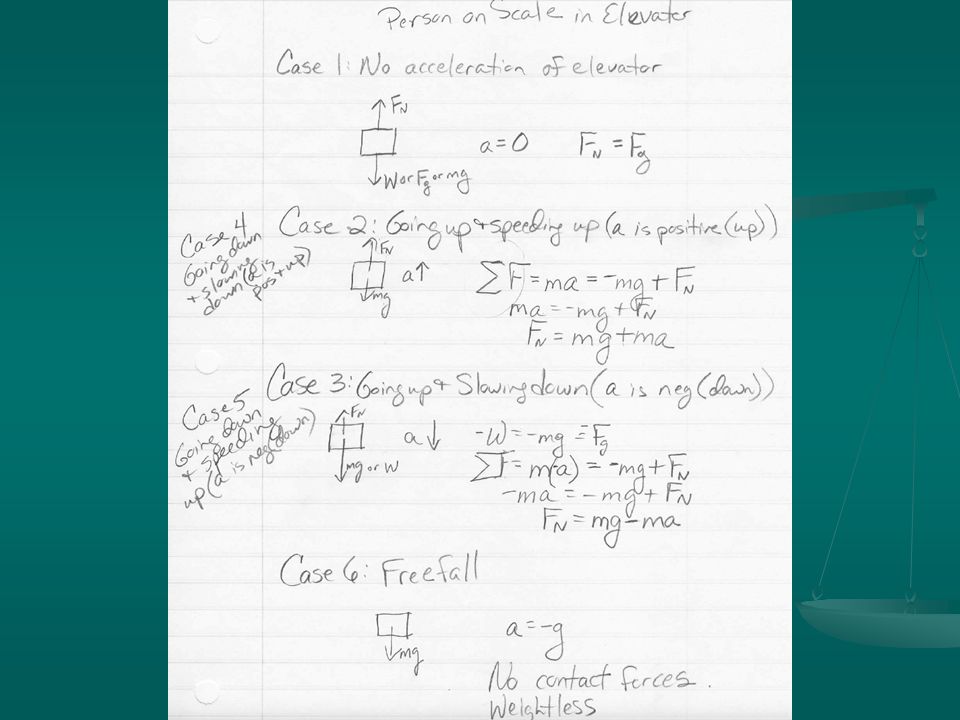 Person on Scale in Elevator
Case 1: No acceleration of elevator
FN
a=0 FN = Fg
W or Fg or mg
Case 2: Going up + speeding up (a is positive (up))
Case 4
Going down
+ slowing
down (a is
pos + up)
FN
a↑
mg
∑F = ma = -mg + FN
ma = -mg + FN
FN = mg + ma
Case 3: Going up + Slowing down (a is neg (down))
Case 5
Going down
+ speeding
up (a is neg (down)
FN
a↓
mg or W
-W = -mg = Fg
∑F = m(-a) = -mg + FN
-ma = -mg + FN
FN = mg - ma
Case 6: Freefall
mg
a = -g
No contact forces.
Weightless